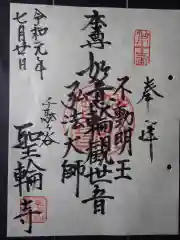 奉拝
不動明王
本尊 如意輪観世音
弘法大師
子歌ヶ谷
聖輪寺
令和元年
七月廿日